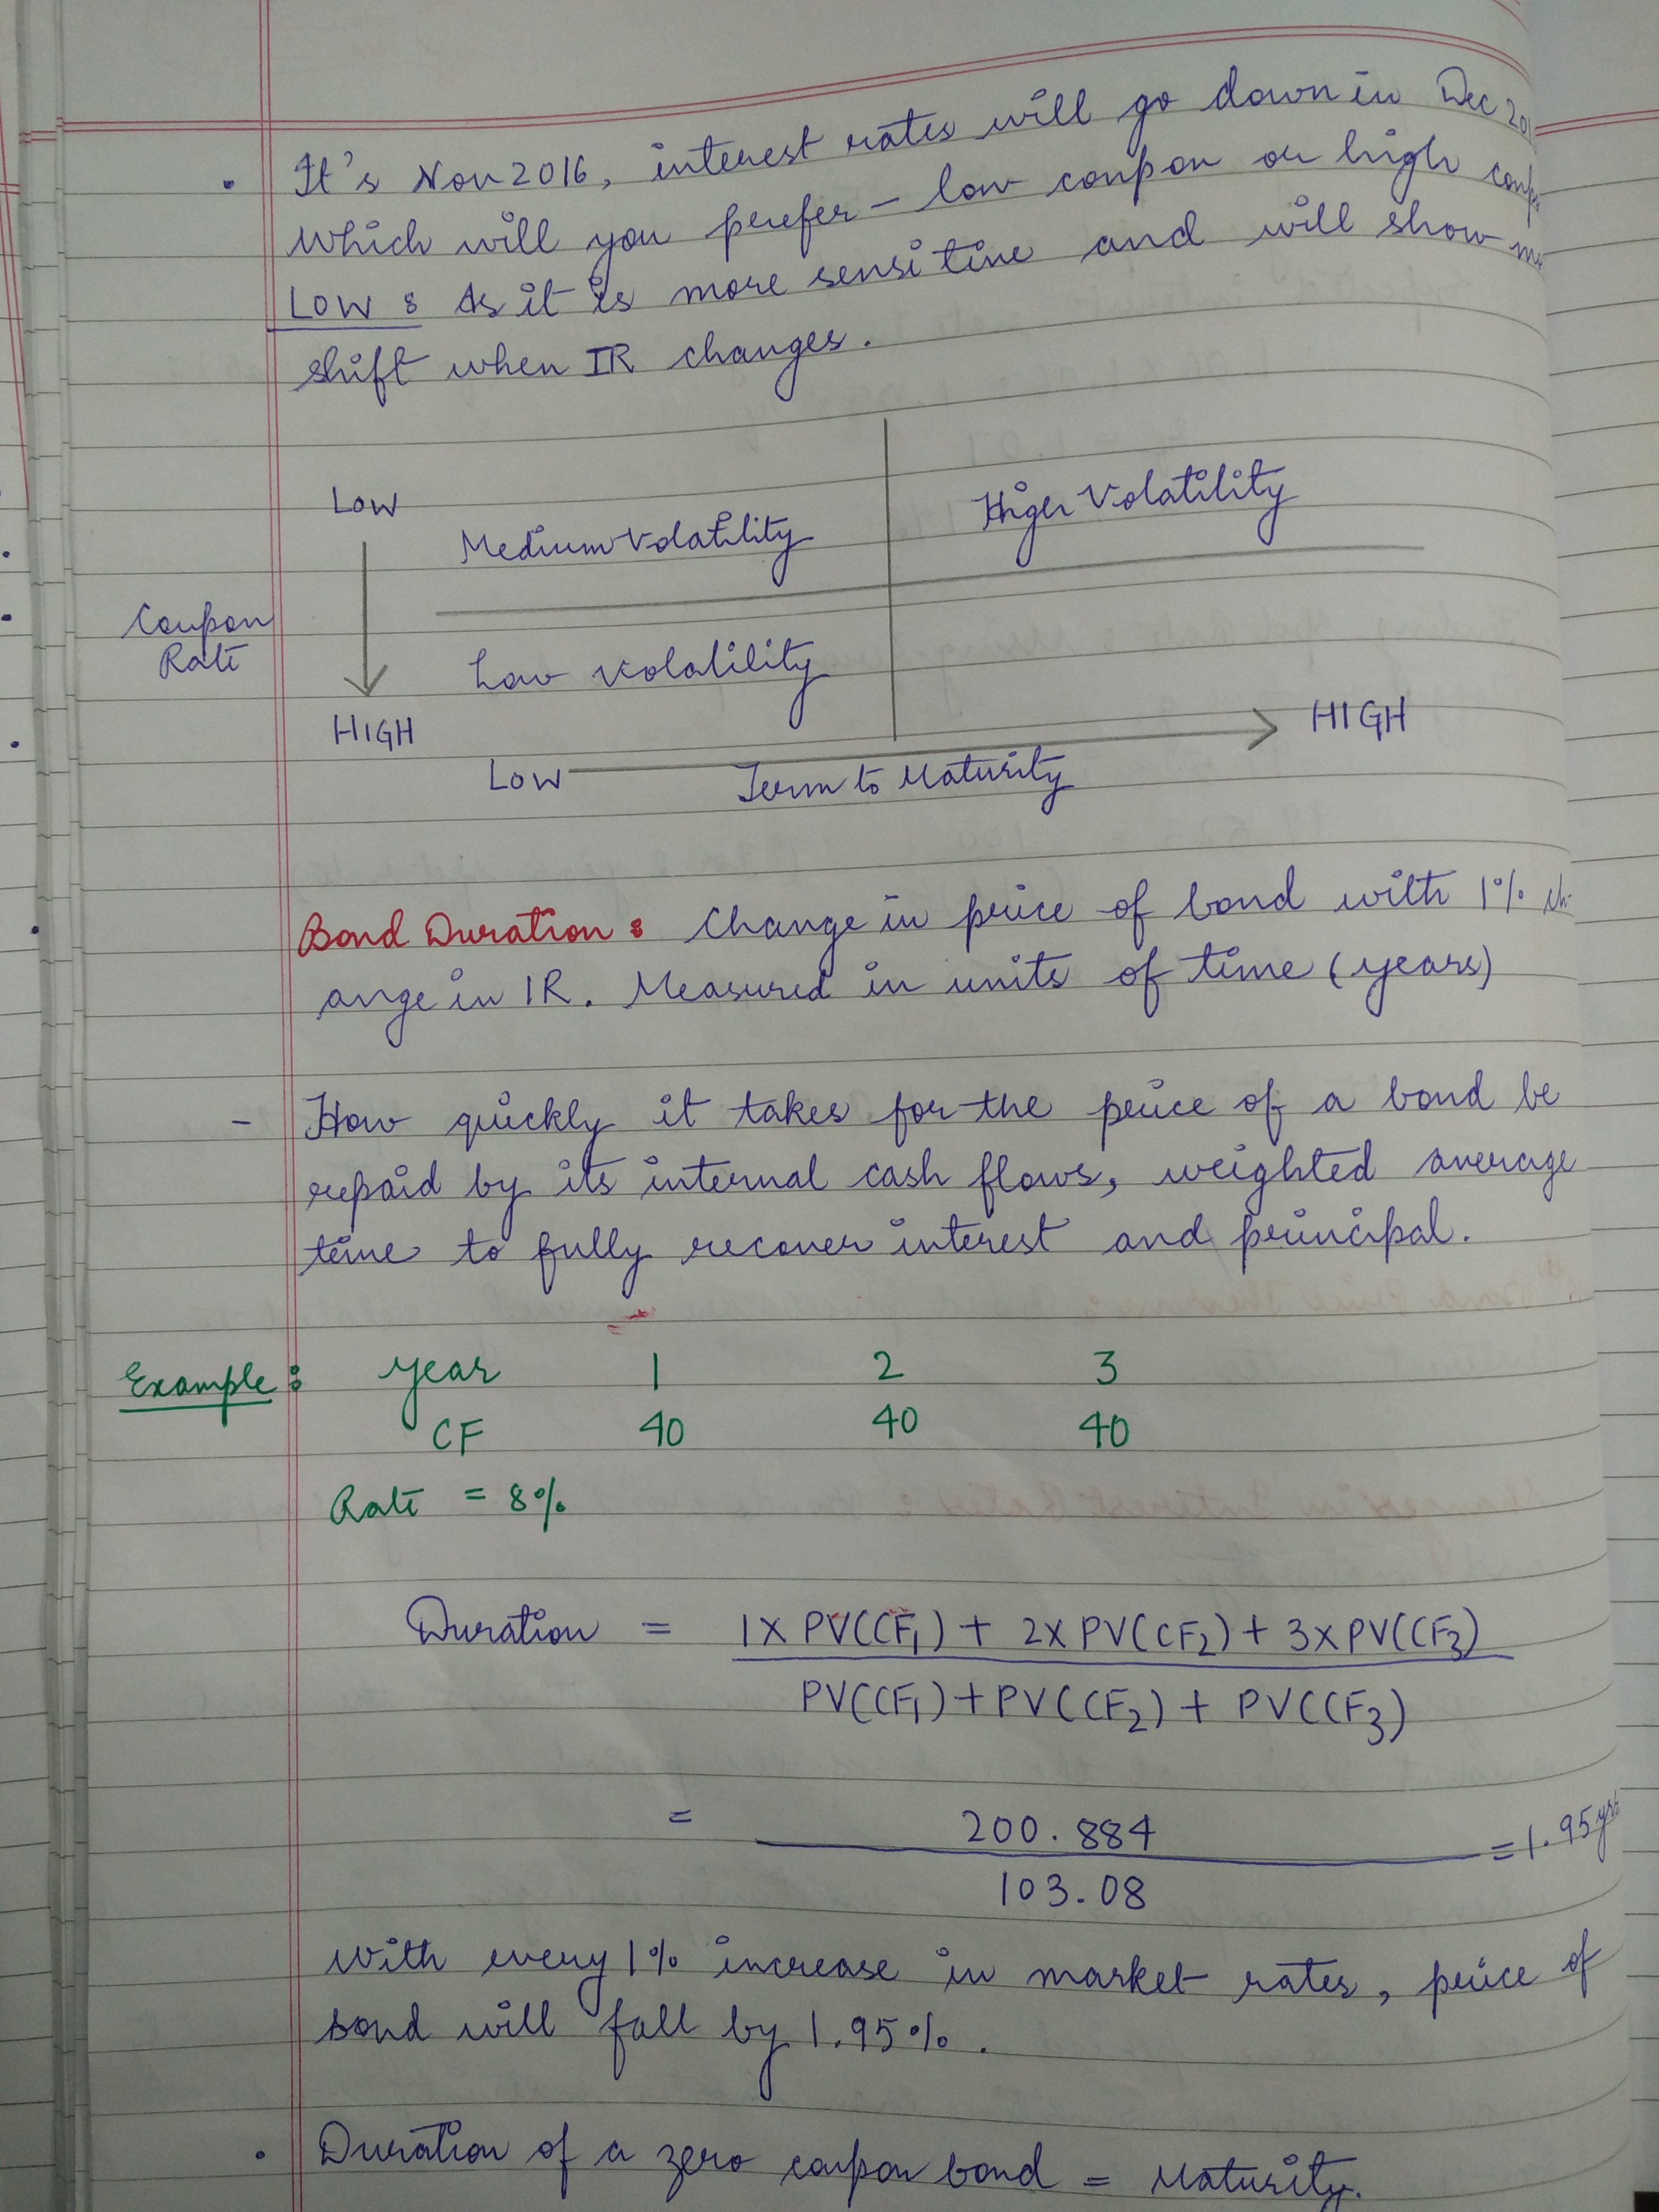 It's Nov 2016, interest rates will go down in Dec
Which will you prefer - low coupon or high
LOW : As it is more sensitive and will show
shift when IR changes.
LOW
Medium Volatility
Higer Volatility
Coupon
Rate
Low Volatility
HIGH
HIGH
LOW
Term to Maturity
Bond Duration : Change in price of bond with 1% ch-
ange in IR. Measured in units of time (years)
- How quickly it takes for the price of a bond be
repaid by its internal cash flows, weighted average
time to fully recover interest and principal.
Example : Year 1 2 3
CF 40 40 40
Rate = 8%
Duration = 1 x PV(CF1) + 2 x PV(CF2) + 3 x PV(CF3)
PV(CF1) + PV(CF2) + PV(CF3)
= 200.884 = 1.95 yrs
103.08
With every 1% increase in market rates, price of
bond will fall by 1.95%.
• Duration of a zero coupon bond = Maturity.